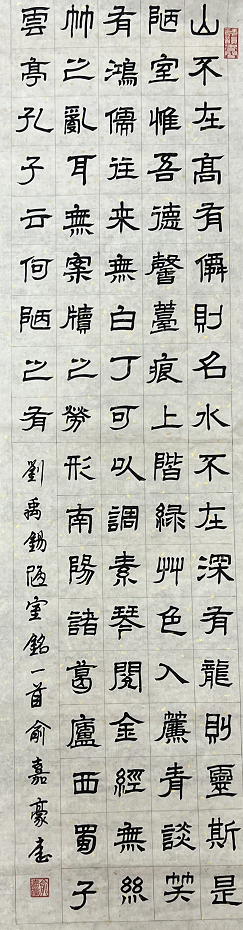 山不在髙有僊則名水不在深有龍則靈斯是
陋室惟吾德馨薹痕上階綠艸色入簾青談笑
有鴻儒往来無白丁可以調素琴閱金經無絲
竹之亂耳無案牘之勞形南陽諸葛廬西蜀子
雲亭孔子云何陋之有
劉禹錫陋室銘一首俞嘉豪書